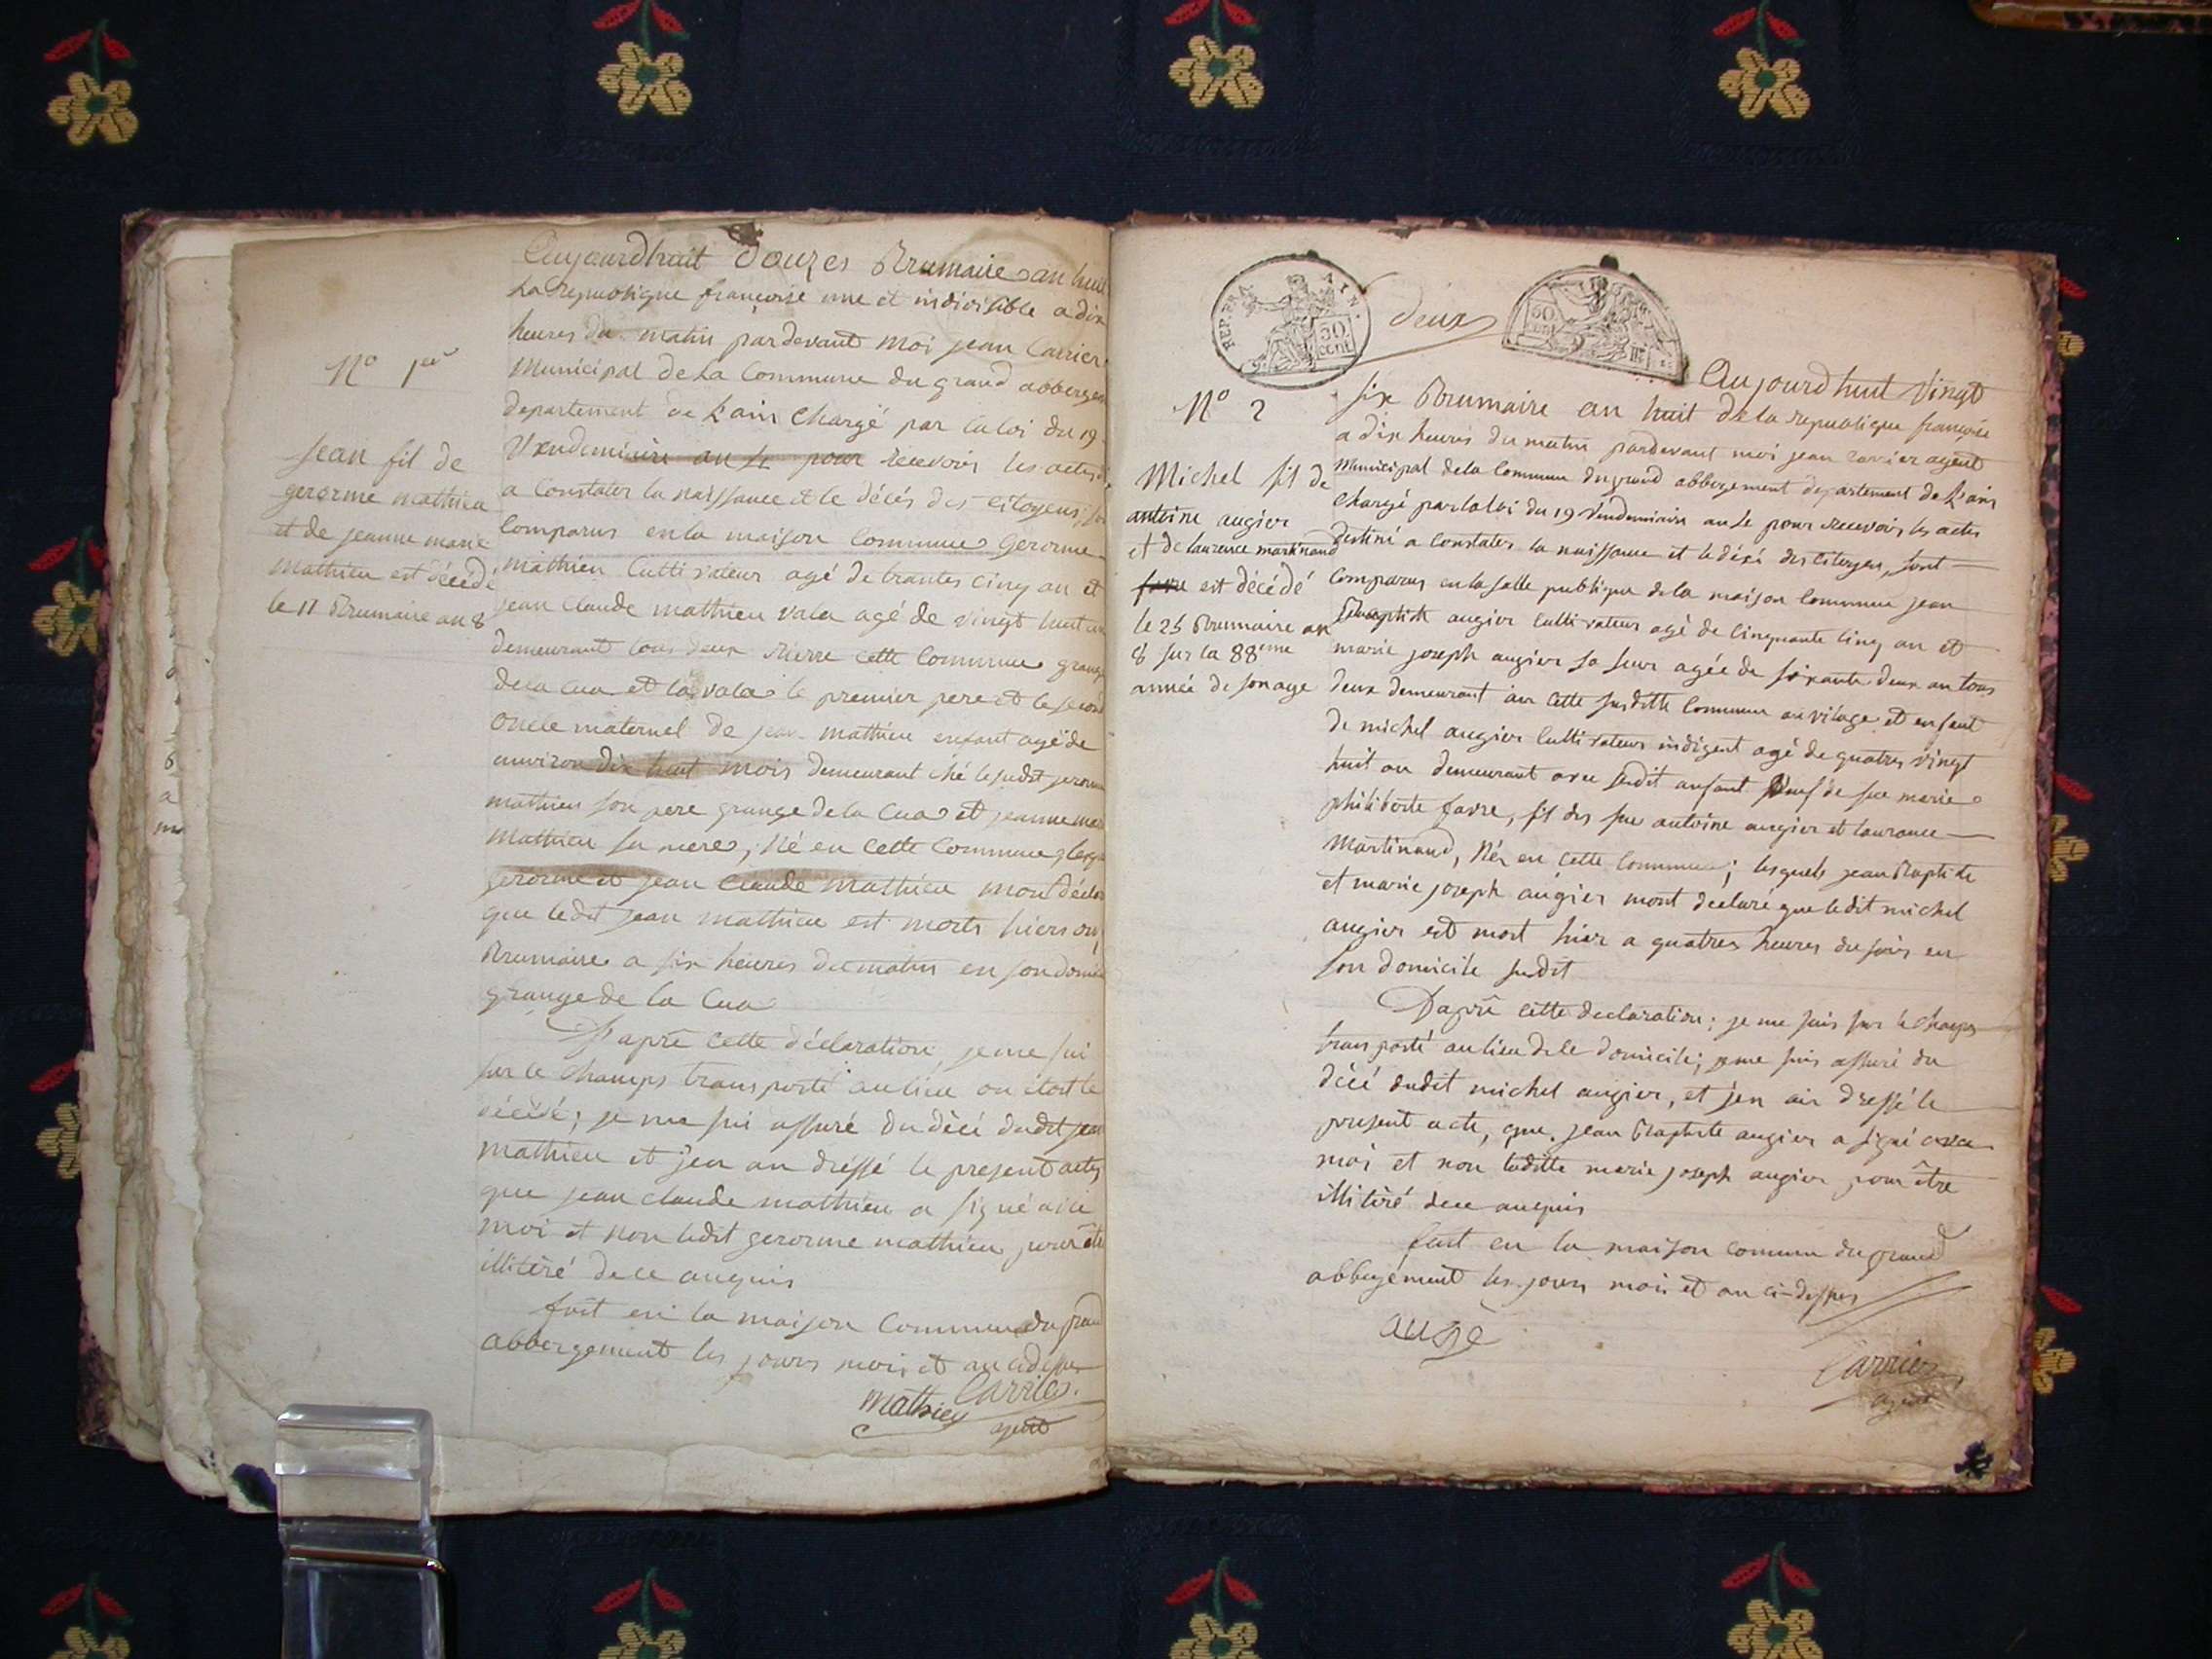 Aujourdhuit douzes Brumaire an huit
La republique françoise une et indivisible a dix
heures du matin pardevant moi jean Carrier
Municipal de La Commune du grand abbergem
departement de L'ain Chargé par la loi du 19
Vendemiaire an 4e pour recevoir les actes
a Constater la naissance et le décés des citoyens,
Comparus en la maison Commune gerorme
mathieu Cultivateur agé de trantes cinq an et
jean Claude mathieu vala agé de vingt huit an
demeurant tous deux rierre cette Commune grange
de la Cua et la vala le premier pere et le second
oncle maternel de jean mathieu enfant agé de
anviron dix huit mois demeurant ché le sudit gerorme
mathieu son pere grange de la Cua et jeanne marie
mathieu sa mere, Né en cette Commune, lesq
gerorme et jean Claude Mathieu mont déclaré
que ledit jean mathieu est morts hiers on
Brumaire a six heures du matin en son domi
grange de la Cua
D'apré cette déclaration, je me sui
sur le Champs transporté au lieu ou étoit le
décédé; je me sui assuré du décé dudit jean
mathieu et j'en an dréssé le present actes
que jean claude mathieu a signé avec
moi et non ledit gerorme mathieu pour être
illitéré de ce anquis
fait en la maison Commune du grand
abbergement les jours mois et an cidessus
Mathieu Carrier
agent
No 1er
Jean fil de
gerorme mathieu
et de jeanne marie
mathieu est décédé
le 11 Brumaire an 8
REP. FRA
50
cent
deux
50
cent
Aujourdhuit Vingt
six Brumaire an huit de la republique françoise
a dix heures du matin pardevant moi jean Carrier agent
Municipal de la Commune du grand abbergement departement de L'ain
Chargé par la loi du 19 Vendemiaire an 4e pour recevoir les actes
destiné a Constater la naissance et le décé des Citoyens, sont
Comparus en la salle publique de la maison Commune jean
Baptiste augier Cultivateur agé de Cinquante Cinq an et
marie joseph augier sa seur agée de soixante deux an tous
deux demeurant an cette susditte Commune au vilage et enfant
de michel augier Cultivateur indigent agé de quatres vingt
huit an demeurant avec sesdit anfant veuf de fue marie
philiberte favre, fil des fue antoine augier et laurance
Martinand, Néz en cette Commune; lesquels jean Baptiste
et marie joseph augier mont declaré que ledit michel
augier est mort hier a quatres heures du soir en
son domicile sudit
D'apré cette declaration; je me suis sur le Champs
transporté au lieu de le domicile; je me suis assuré du
décé dudit michel augier, et j'en ai dressé le
present acte, que jean Baptiste augier a signé avec
moi et non laditte marie joseph augier pour être
illitéré de ce anquis
fait en la maison comune du grand
abbergement les jours mois et an ci-dessus
auge
Carrier
agent
No 2
Michel fil de
antoine augier
et de laurence martinand
favre est décédé
le 25 Brumaire an
8 sur la 88eme
année de son age